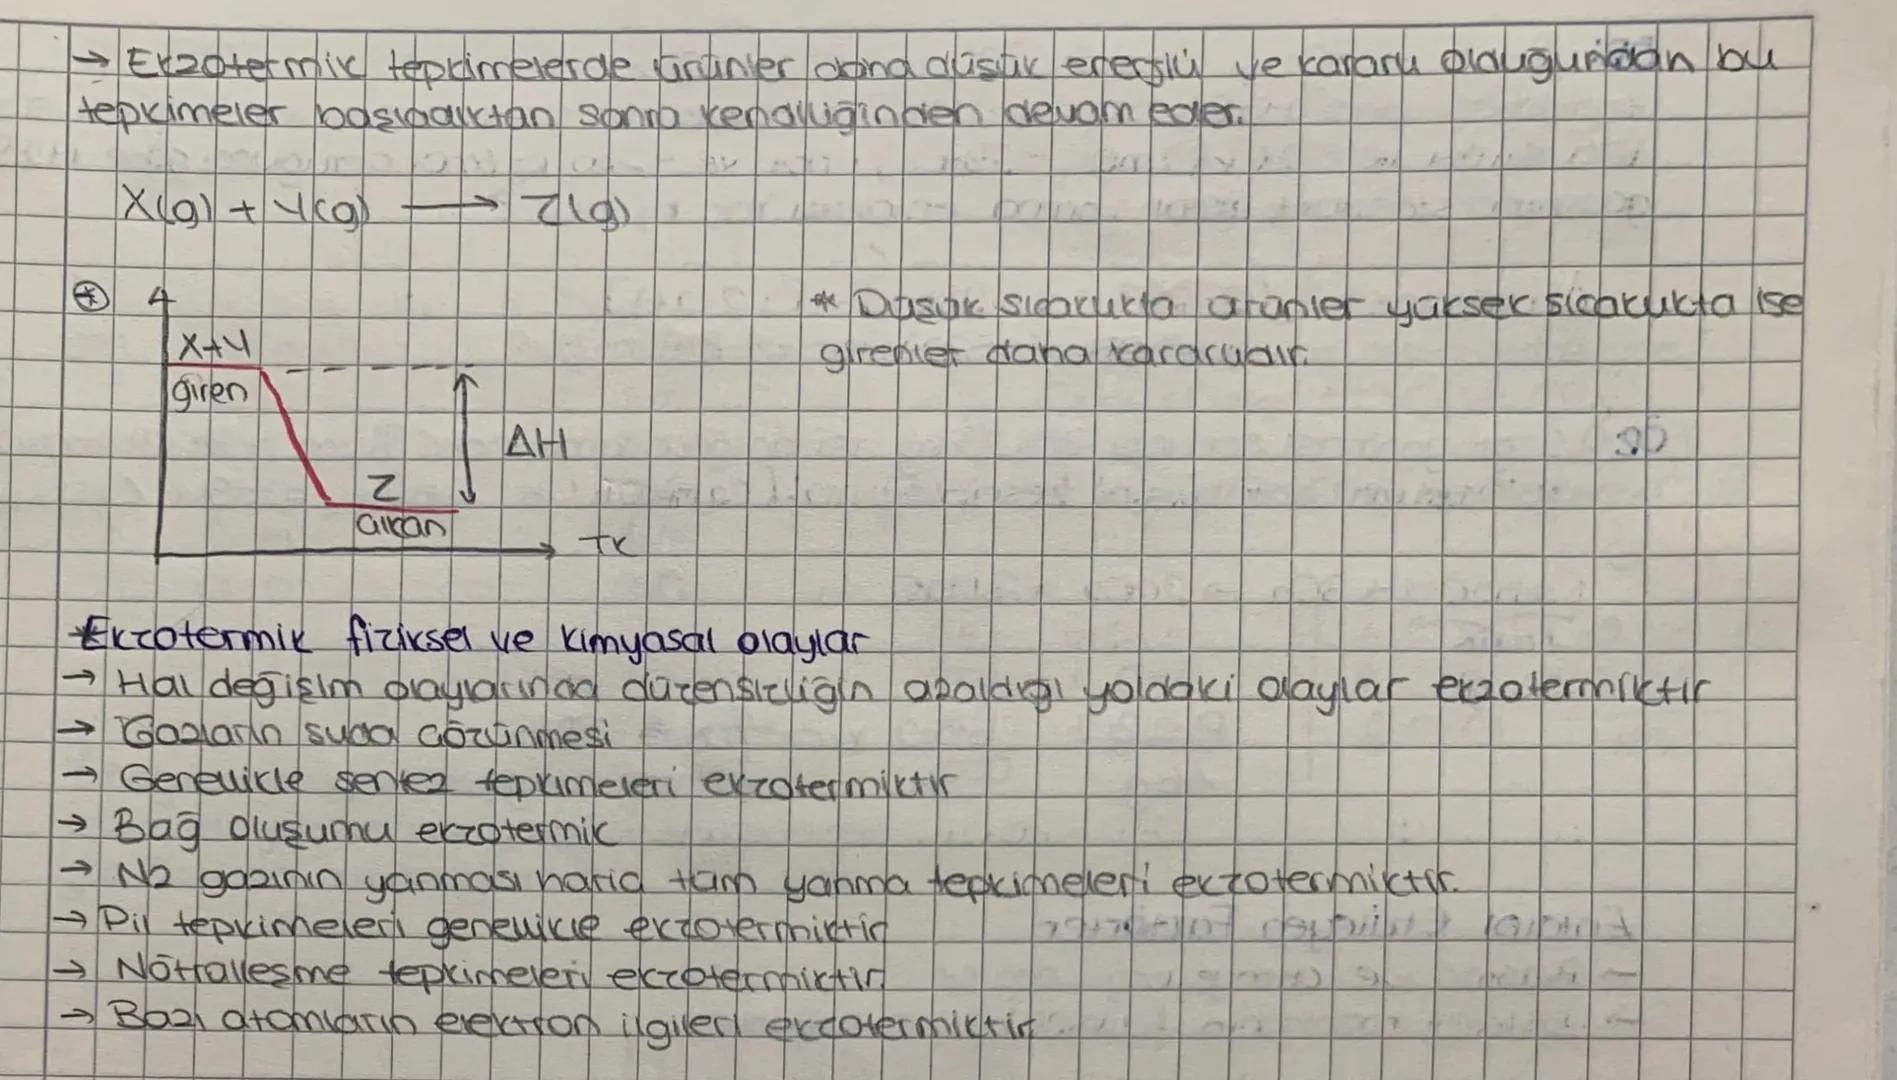 → Ekzotermik tepkimelerde ürünler daha düşük enerjili ve kararlı olduğundan bu
tepkimeler başladıktan sonra kendiliğinden devam eder.
X(g) + Y(g) ⟶ Z(g)
* H
X+Y
giren
ΔH
Z
çıkan
TK
* Düşük sıcaklıkta ürünler yüksek sıcaklıkta ise
girenler daha kararlıdır.
*Ekzotermik fiziksel ve kimyasal olaylar
→ Hal değişim olaylarında düzensizliğin azaldığı yöndeki olaylar ekzotermiktir
→ Gazların suda çözünmesi
→ Genellikle sentez tepkimeleri ekzotermiktir
→ Bağ oluşumu ekzotermik
→ N2 gazının yanması hariç tam yanma tepkimeleri ekzotermiktir.
→ Pil tepkimeleri genellikle ekzotermiktir
→ Nötralleşme tepkimeleri ekzotermiktir
→ Bazı atomların elektron ilgileri ekzotermiktir